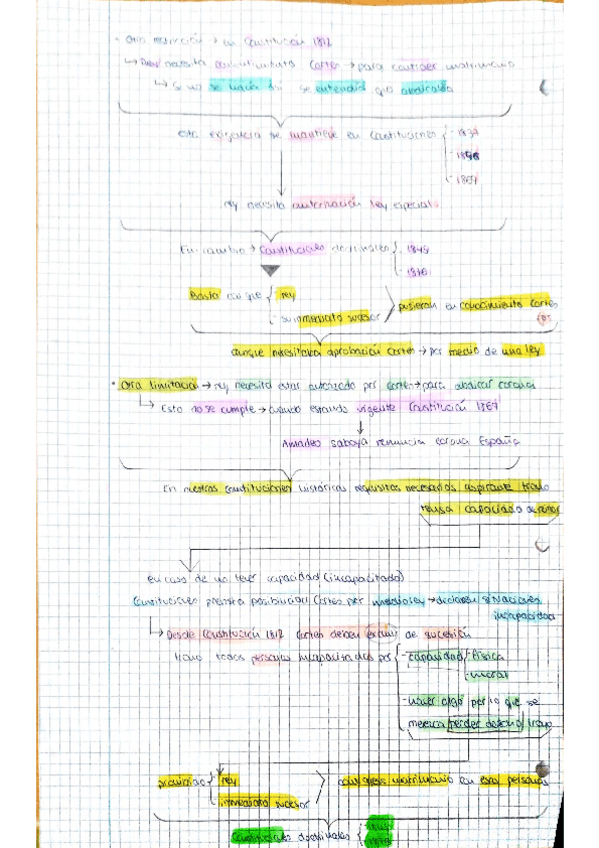 · Otra restricción → en Constitución 1812
↳ Rey necesita consentimiento Cortes → para contraer matrimonio
↳ Si no se hacía así se entendía que abdicaba
esta exigencia se mantiene en Constituciones { - 1837
- 1856
- 1869
rey necesita autorización ley especial
En cambio → Constituciones doctrinales { - 1845
- 1876
Basta con que { - rey
- su inmediato sucesor > pusieran en conocimiento Cortes
aunque necesitaba aprobación Cortes → por medio de una ley
· Otra limitación → rey necesita estar autorizado por Cortes → para abdicar corona
↳ Esto no se cumple → cuando estando vigente Constitución 1869
Amadeo Saboya renuncia corona España
En nuestras Constituciones históricas requisitos necesarios aspirante trono
tenga capacidad de
en caso de no tener capacidad (incapacitado)
Constituciones posibilidad Cortes por medio ley → declaren
incapacidad
↳ Desde Constitución 1812 Cortes deben excluir de sucesión
trono todas personas incapacitadas por { - capacidad física
moral
- hacer algo por lo que se
merezca perder derecho trono
{ rey
inmediato sucesor > matrimonio con esas personas
Constituciones doctrinales { 1845
1876